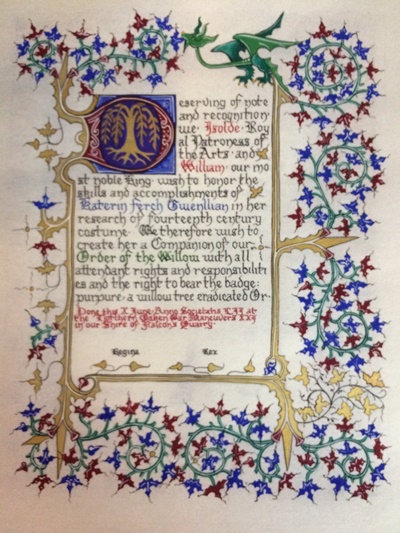 Deserving of note
and recognition
we Isolde Roy
al Patroness of
the Arts and
William our mo
st noble King wish to honor the
skills and accomplishments of
Katerin ferch Gwenllian in her
research of fourteenth century
costume We therefore wish to
create her a Companion of our
Order of the Willow with all
attendant rights and responsibiliti
es and the right to bear the badge:
purpure a willow tree eradicated Or.
Done this X June Anno Societatis LII at
the Northern Oaken War Maneuvers XXV
in our Shire of Falcon's Quarry
Regina Rex